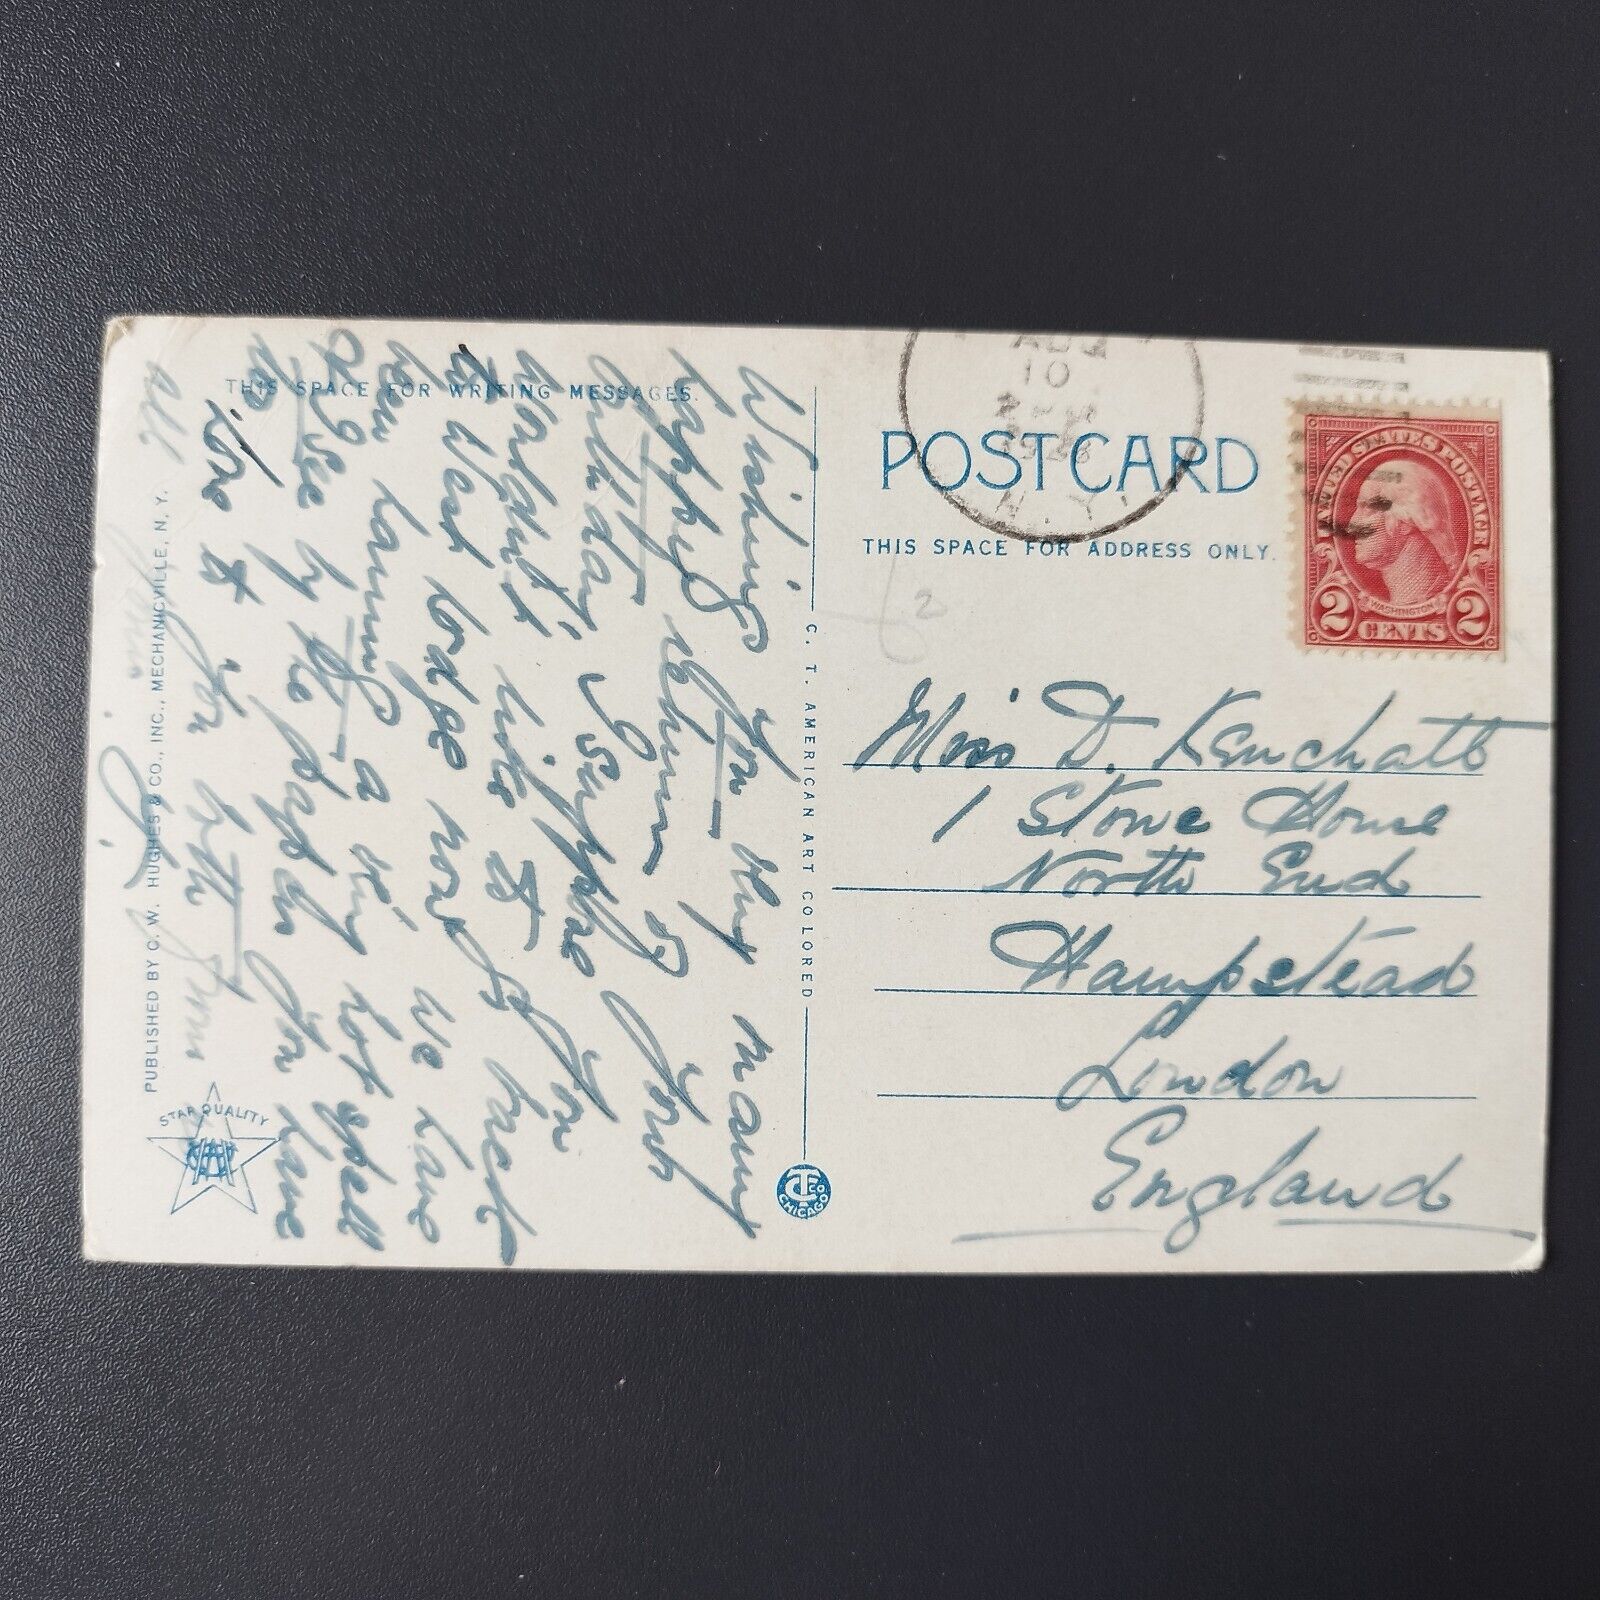 THIS SPACE FOR WRITING MESSAGES.
Wishing you very many
happy returns of your
birthday I suppose you
wouldn't like to
to West Lodge now back
we have
been having a very hot spell
I see by the papers you have
to
love to you both from
all
PUBLISHED BY C. W. HUGHES & CO., INC., MECHANICVILLE, N. Y.
STAR QUALITY
C. T. AMERICAN ART COLORED
C.T. CO. CHICAGO
AUG
10
1928
N.Y.
POST CARD
THIS SPACE FOR ADDRESS ONLY.
UNITED STATES POSTAGE
WASHINGTON
2 CENTS 2
2
Miss D. Kenchatt
1 Stowe House
North End
Hampstead
London
England